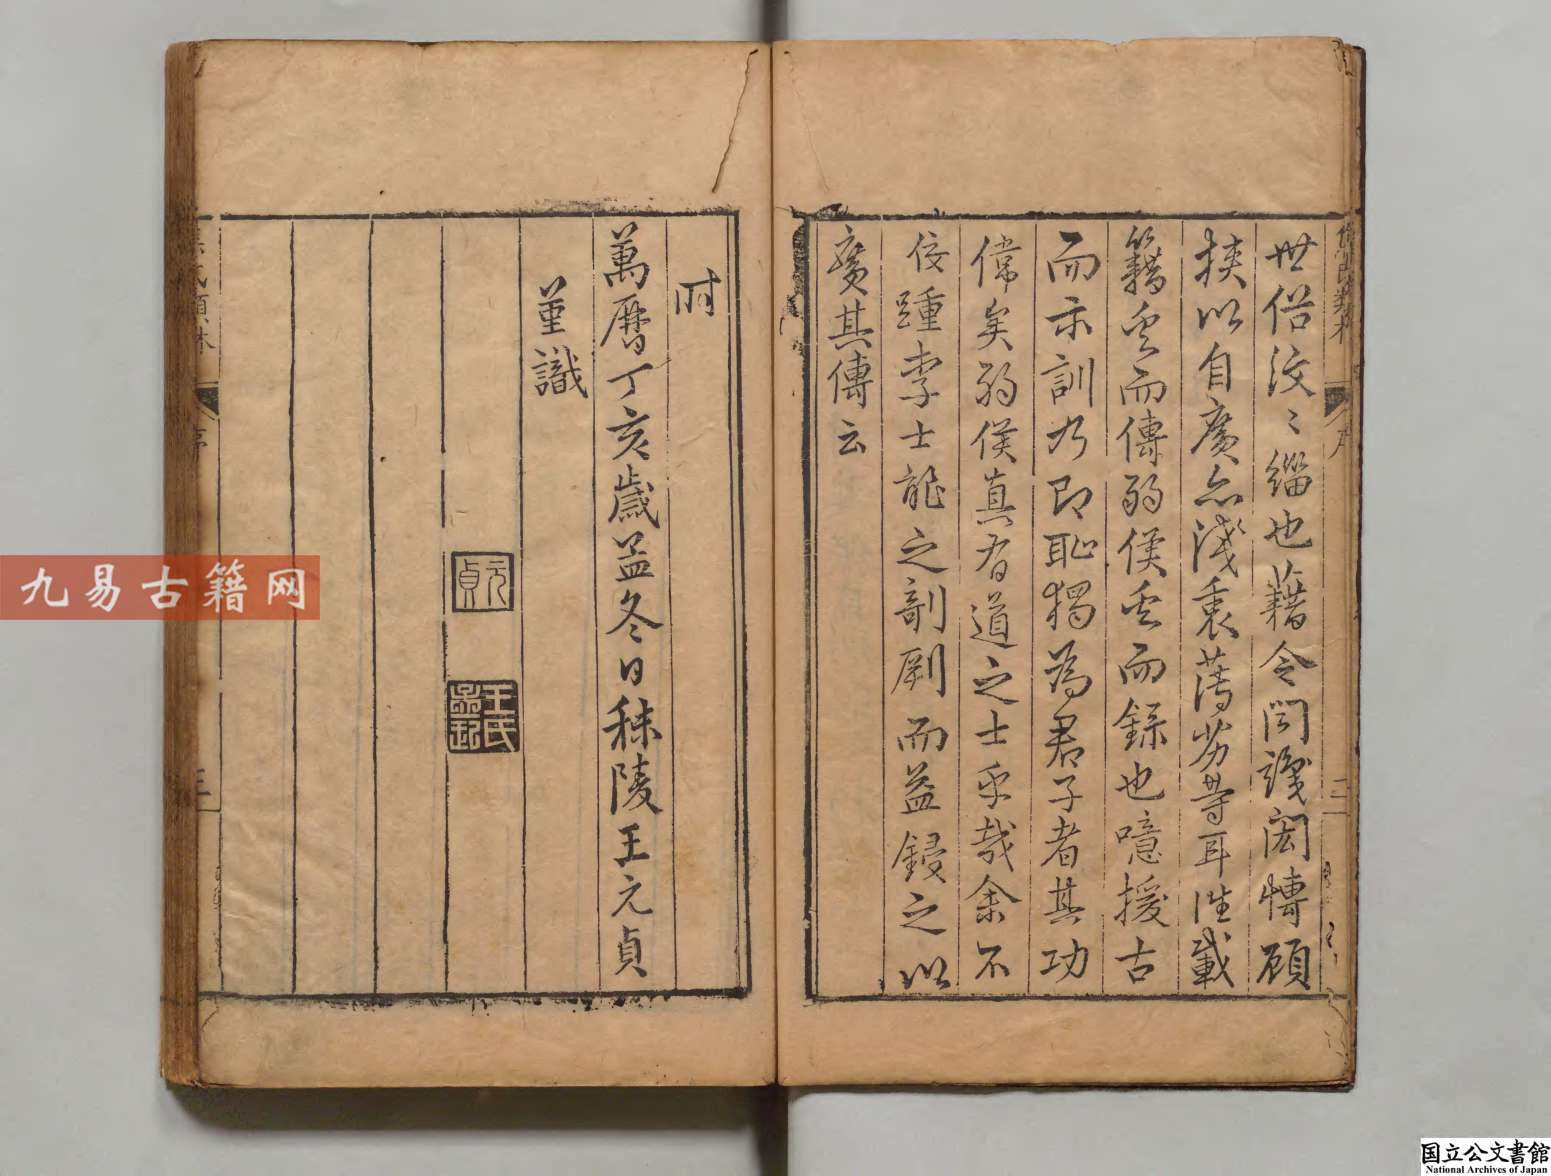 世俗汶〻緇也藉令閎議閎慱顧
挾以自廣亦淺衷薄劣等耳記載
籍矣而傳弱侯矣而錄也噫援古
而示訓乃即恥獨為君子者其功
偉矣弱侯真有道之士乎哉余不
佞踵李士龍之剞劂而益鋟之以
廣其傳云
序
三
時
萬曆丁亥歲孟冬日秣陵王元貞
堇識
元貞
王氏孟起
序
三
九易古籍网
国立公文書館
National Archives of Japan